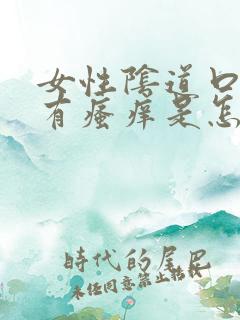 女性陰道口
有瘙痒是怎
時代的尾巴
未经同意禁止转载